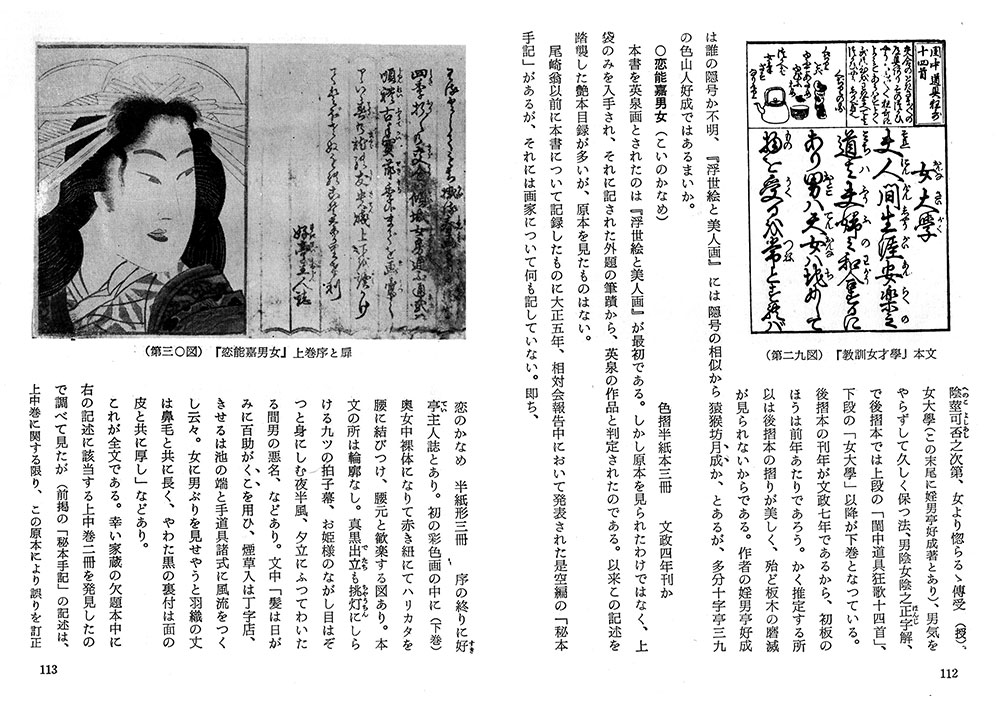 陰莖可否之次第、女より惚らるゝ傳受（授）、
女大學（この末尾に婬男亭好成著とあり）、男気を
やらずして久しく保つ法、男陰女陰之正字解、
で後摺本では上段の「閨中道具狂歌十四首」、
下段の「女大學」以降が下巻となつている。
後摺本の刊年が文政七年であるから、初板の
ほうは前年あたりであろう。かく推定する所
以は後摺本の摺りが美しく、殆ど板木の磨滅
が見られないからである。作者の婬男亭好成
は誰の隠号か不明、『浮世絵と美人画』には隠号の相似から猿猴坊月成か、とあるが、多分十字亭三九
の色山人好成ではあるまいか。
〇恋能嘉男女（こいのかなめ）　色摺半紙本三冊　文政四年刊か
本書を英泉画とされたのは『浮世絵と美人画』が最初である。しかし原本を見られたわけではなく、上
袋のみを入手され、それに記された外題の筆蹟から、英泉の作品と判定されたのである。以来この記述を
踏襲した艶本目録が多いが、原本を見たものはない。
尾崎翁以前に本書について記録したものに大正五年、相対会報告中において発表された是空編の「秘本
手記」があるが、それには画家について何も記していない。即ち、
（第二九図）『教訓女才學』本文
閨中道具狂哥
十四首
女大學
夫人間生涯安楽之
道ハ夫婦之和合
あり男ハ天女ハ地
112
恋のかなめ　半紙形三冊　序の終りに好
亭主人誌とあり。初の彩色画の中に（下巻）
奥女中裸体になりて赤き紐にてハリカタを
腰に結びつけ、腰元と歓楽する図あり。本
文の所は輪廓なし。真黒出立も挑灯にしら
ける九ツの拍子幕、お姫様のながし目はぞ
つと身にしむ夜半風、夕立にふつてわいた
る間男の悪名、などあり。文中「髪は日が
みに百助がくこを用ひ、煙草入は丁字店、
きせるは池の端と手道具諸式に風流をつく
し云々。女に男ぶりを見せやうと羽織の丈
は鼻毛と共に長く、やわた黒の裏付は面の
皮と共に厚し」などあり。
これが全文である。幸い家蔵の欠題本中に
右の記述に該当する上中巻二冊を発見したの
で調べて見たが（前掲の「秘本手記」の記述は、
上中巻に関する限り、この原本により誤りを訂正
（第三〇図）『恋能嘉男女』上巻序と扉
好亭主人誌
113